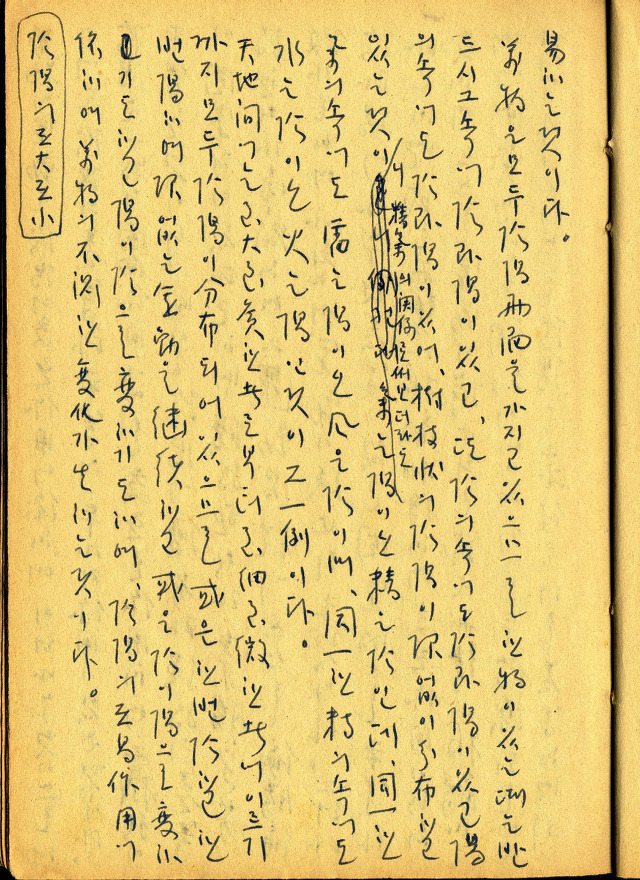 易하는것이다。
萬物은모두陰陽兩面을가지고있으므로한物이있는때는반
드시그속에陰과陽이있고、또陰의속에도陰과陽이있고陽
의속에도陰과陽이있어、樹枝狀의陰陽이限없이分布한
있는것이니精氣의関係로써보더라도氣는陽이오精은陰인데、同一한
氣의속에도雷는陽이오風은陰이며、同一한精의속에도
水는陰이오火는陽인것이그一例이다。
天地間에는至大至廣한지로부터至細至微한지에이르기
까지모두陰陽이分布되어있으므로或은한번陰하고한
번陽하여限없는運動을継続하고或은陰이陽으로変하
기도하고陽이陰으로変하기도하여、陰陽의交易作用에
依하여萬物의不測한変化가生하는것이다。
陰陽의至大至小